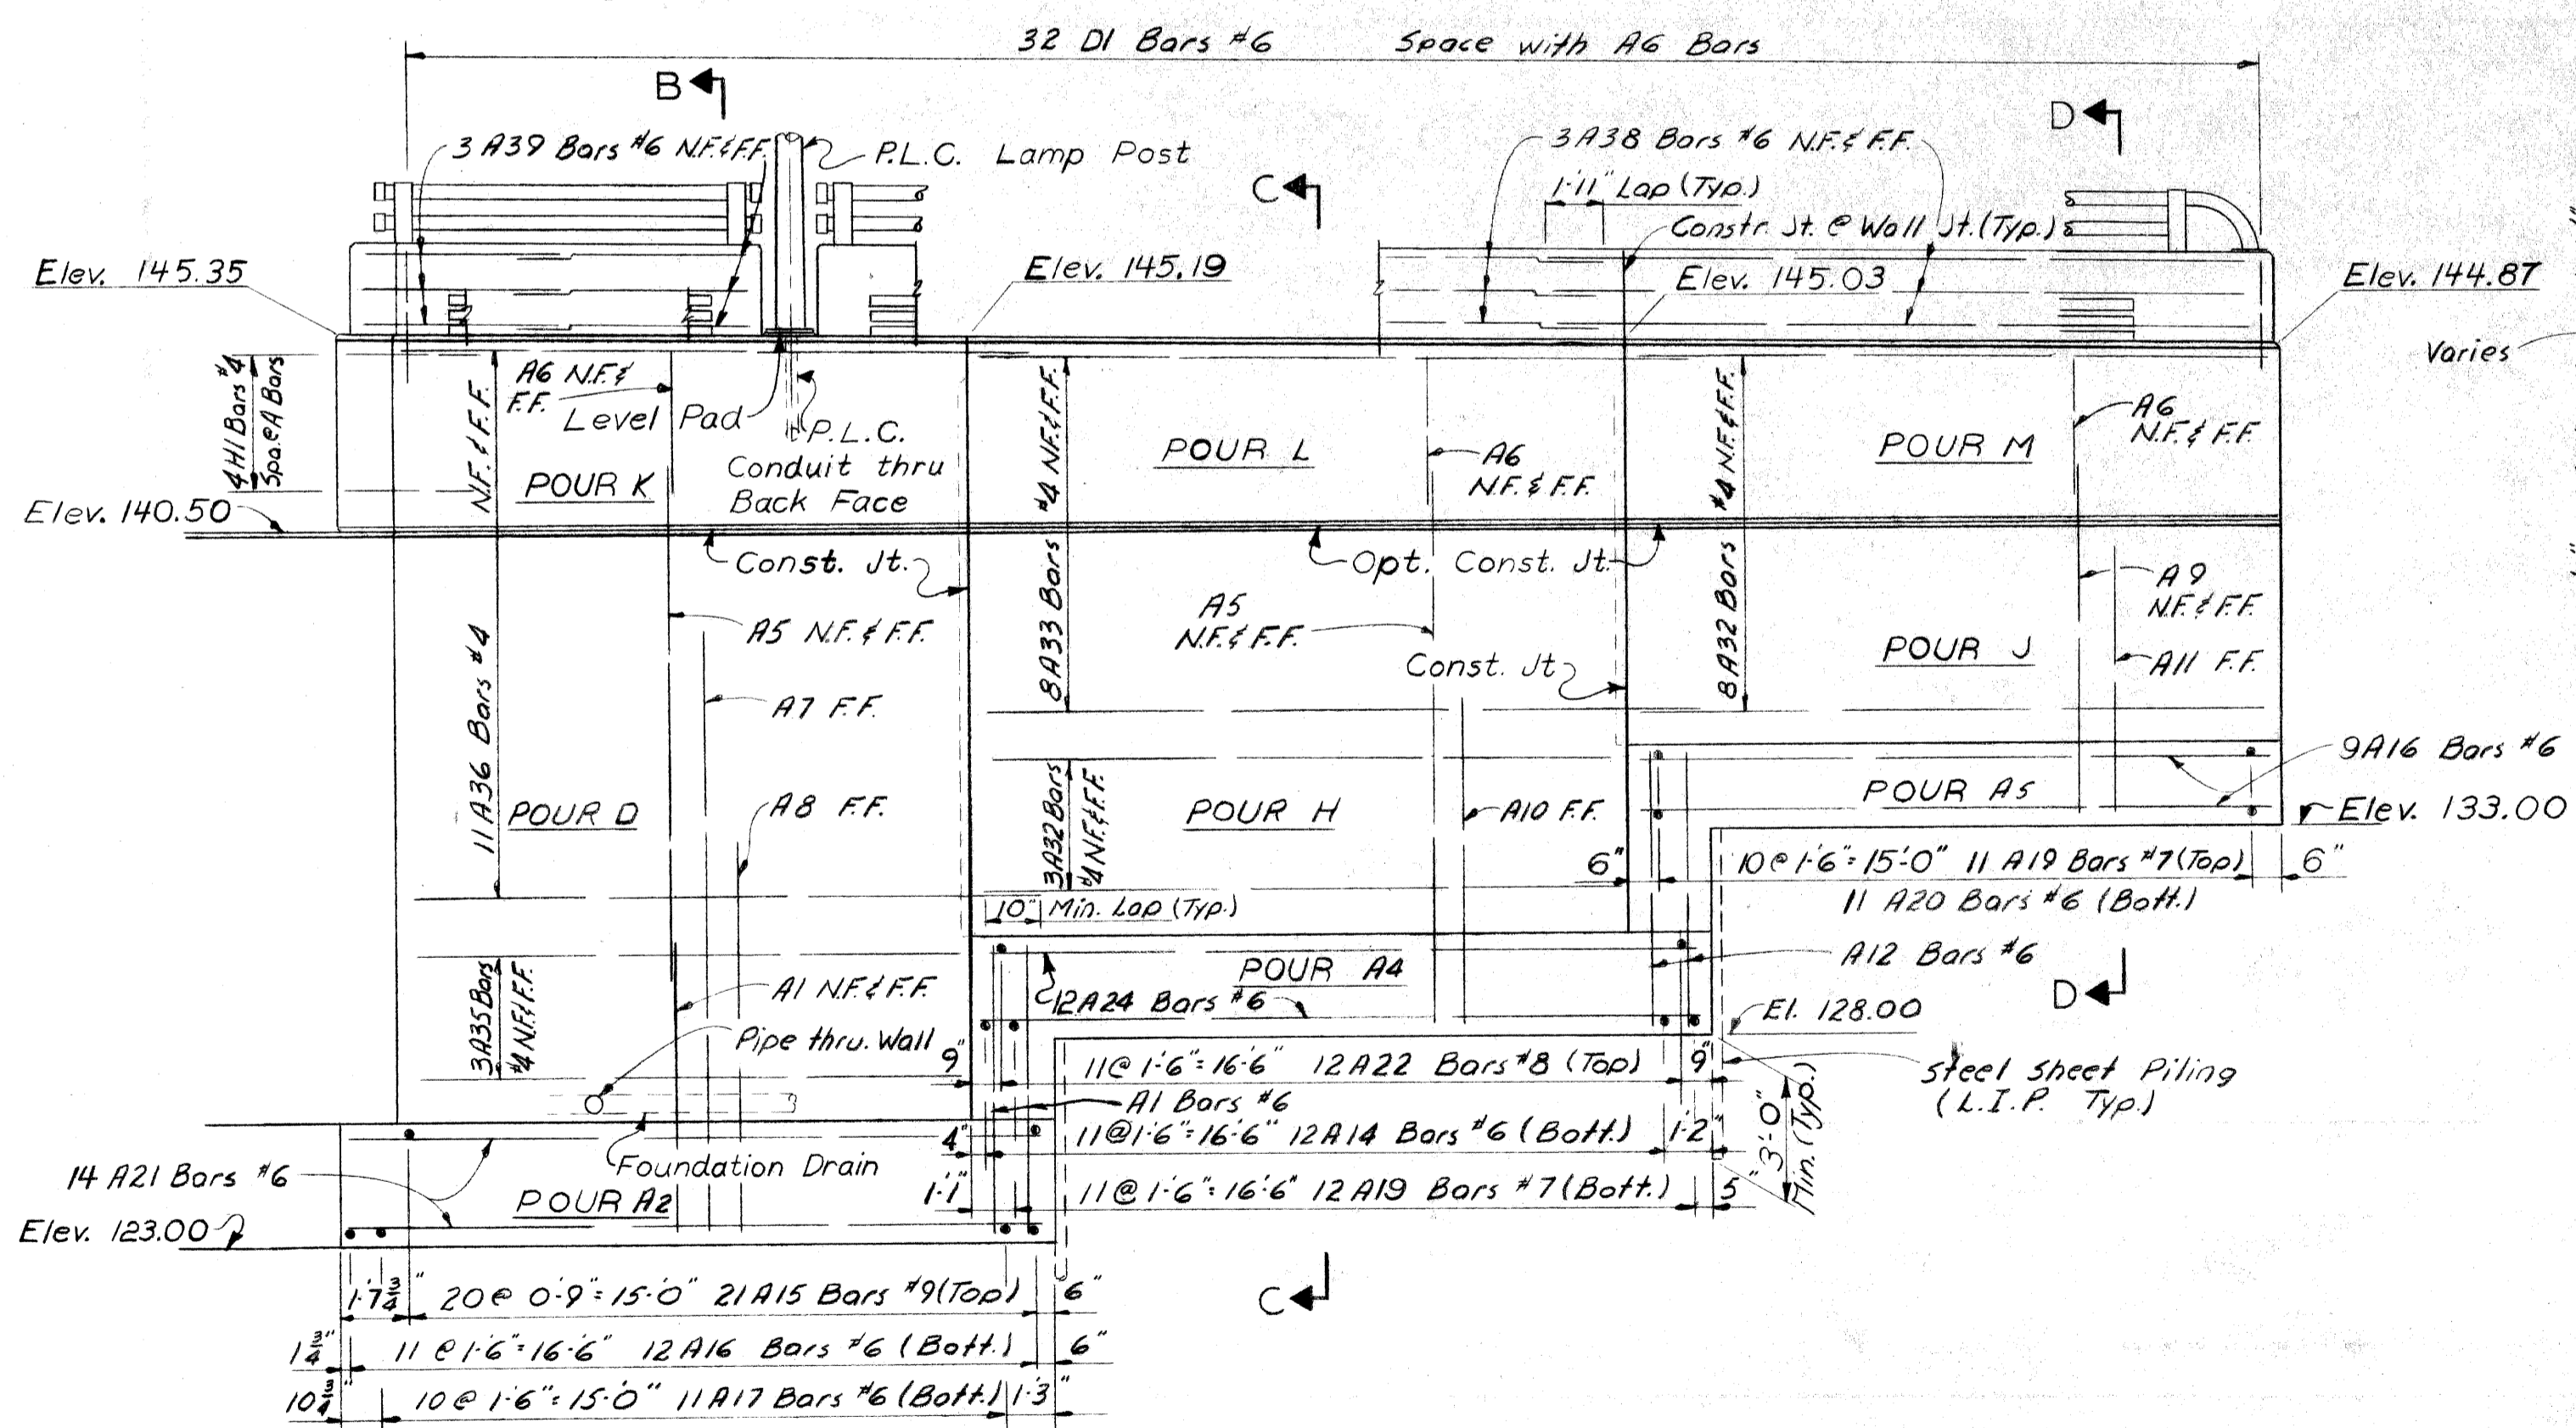 32 D1 Bars #6 Space with A6 Bars
B
D
3 A39 Bars #6 N.F.& F.F.
P.L.C. Lamp Post
C
3 A38 Bars #6 N.F. & F.F.
1'-11" Lap (Typ.)
Constr. Jt. @ Wall Jt. (Typ.)
Elev. 145.35
Elev. 145.19
Elev. 145.03
Elev. 144.87
Varies
4 H1 Bars #4
Spa. @ A Bars
N.F. & F.F.
A6 N.F. &
F.F.
Level Pad
P.L.C.
Conduit thru
Back Face
POUR K
#4 N.F. & F.F.
POUR L
A6
N.F. & F.F.
#4 N.F. & F.F.
POUR M
A6
N.F. & F.F.
Elev. 140.50
Const. Jt.
Opt. Const. Jt.
11 A36 Bars #4
A5 N.F. & F.F.
A7 F.F.
8 A33 Bars
A5
N.F. & F.F.
Const. Jt
8 A32 Bars
POUR J
A9
N.F. & F.F.
A11 F.F.
9 A16 Bars #6
POUR A5
Elev. 133.00
POUR D
A8 F.F.
3 A32 Bars
#4 N.F. & F.F.
POUR H
A10 F.F.
6"
10 @ 1'-6" = 15'-0" 11 A19 Bars #7 (Top)
6"
11 A20 Bars #6 (Bott.)
10" Min. Lap (Typ.)
A12 Bars #6
POUR A4
3 A35 Bars
#4 N.F. & F.F.
A1 N.F. & F.F.
12 A24 Bars #6
D
El. 128.00
Pipe thru. Wall
9"
11 @ 1'-6" = 16'-6" 12 A22 Bars #8 (Top)
9"
Steel Sheet Piling
(L.I.P. Typ.)
A1 Bars #6
4"
11 @ 1'-6" = 16'-6" 12 A14 Bars #6 (Bott.)
1'-2"
3'-0"
Min. (Typ.)
Foundation Drain
14 A21 Bars #6
POUR A2
1'-1"
11 @ 1'-6" = 16'-6" 12 A19 Bars #7 (Bott.)
5"
Elev. 123.00
1'-7 3/4"
20 @ 0'-9" = 15'-0" 21 A15 Bars #9 (Top)
6"
C
1 3/4"
11 @ 1'-6" = 16'-6" 12 A16 Bars #6 (Bott.)
6"
10 3/4"
10 @ 1'-6" = 15'-0" 11 A17 Bars #6 (Bott.)
1'-3"